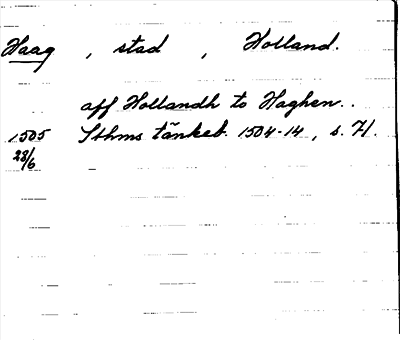 Haag, stad, Holland.
aff Hollandh to Haghen..
1505 Sthms tänkeb. 1504-14, s. 71.
28/6